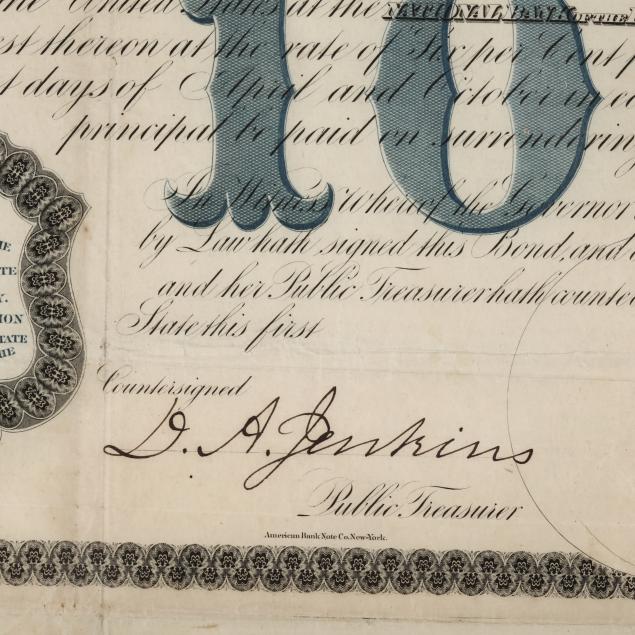 United States at the NATIONAL BANK OF THE
thereon at the rate of Six per Cent
days of April and October in
principal be paid on surrendering
10
In Witness whereof the Governor
by Law hath signed this Bond, and
and her Public Treasurer hath
State this first
ION
TATE
HE
Countersigned
D. A. Jenkins
Public Treasurer
American Bank Note Co. New-York.